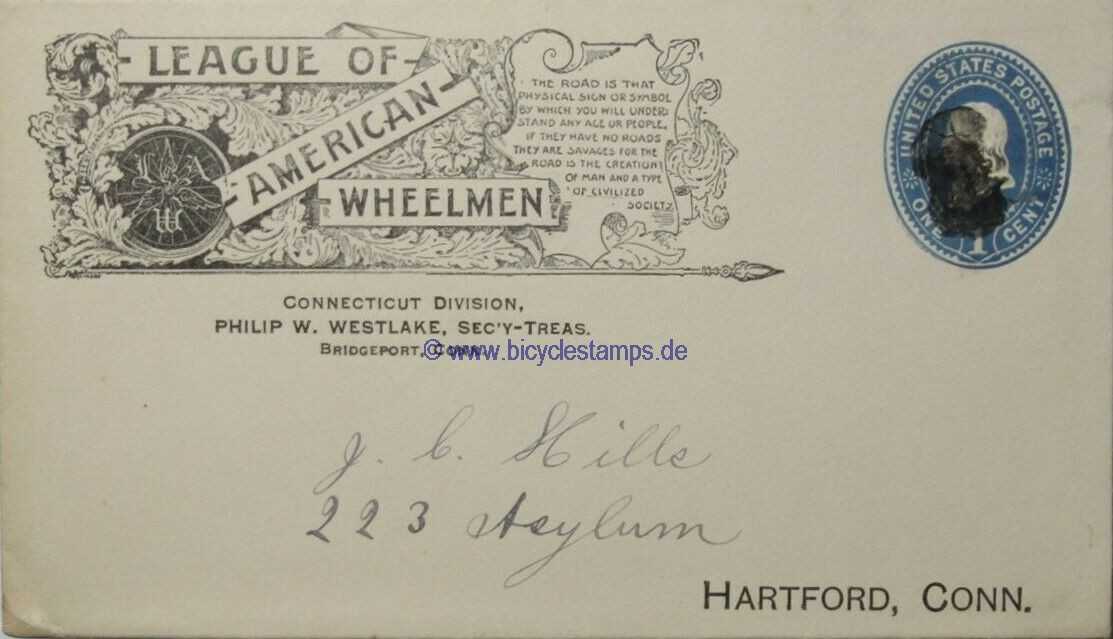 LEAGUE OF
AMERICAN
WHEELMEN
L A
W
THE ROAD IS THAT
PHYSICAL SIGN OR SYMBOL
BY WHICH YOU WILL UNDER-
STAND ANY AGE OR PEOPLE.
IF THEY HAVE NO ROADS
THEY ARE SAVAGES FOR THE
ROAD IS THE CREATION
OF MAN AND A TYPE
OF CIVILIZED
SOCIETY
UNITED STATES POSTAGE
ONE 1 CENT
CONNECTICUT DIVISION,
PHILIP W. WESTLAKE, SEC'Y-TREAS.
BRIDGEPORT, CONN.
© www.bicyclestamps.de
J. C. Hills
223 Asylum
HARTFORD, CONN.